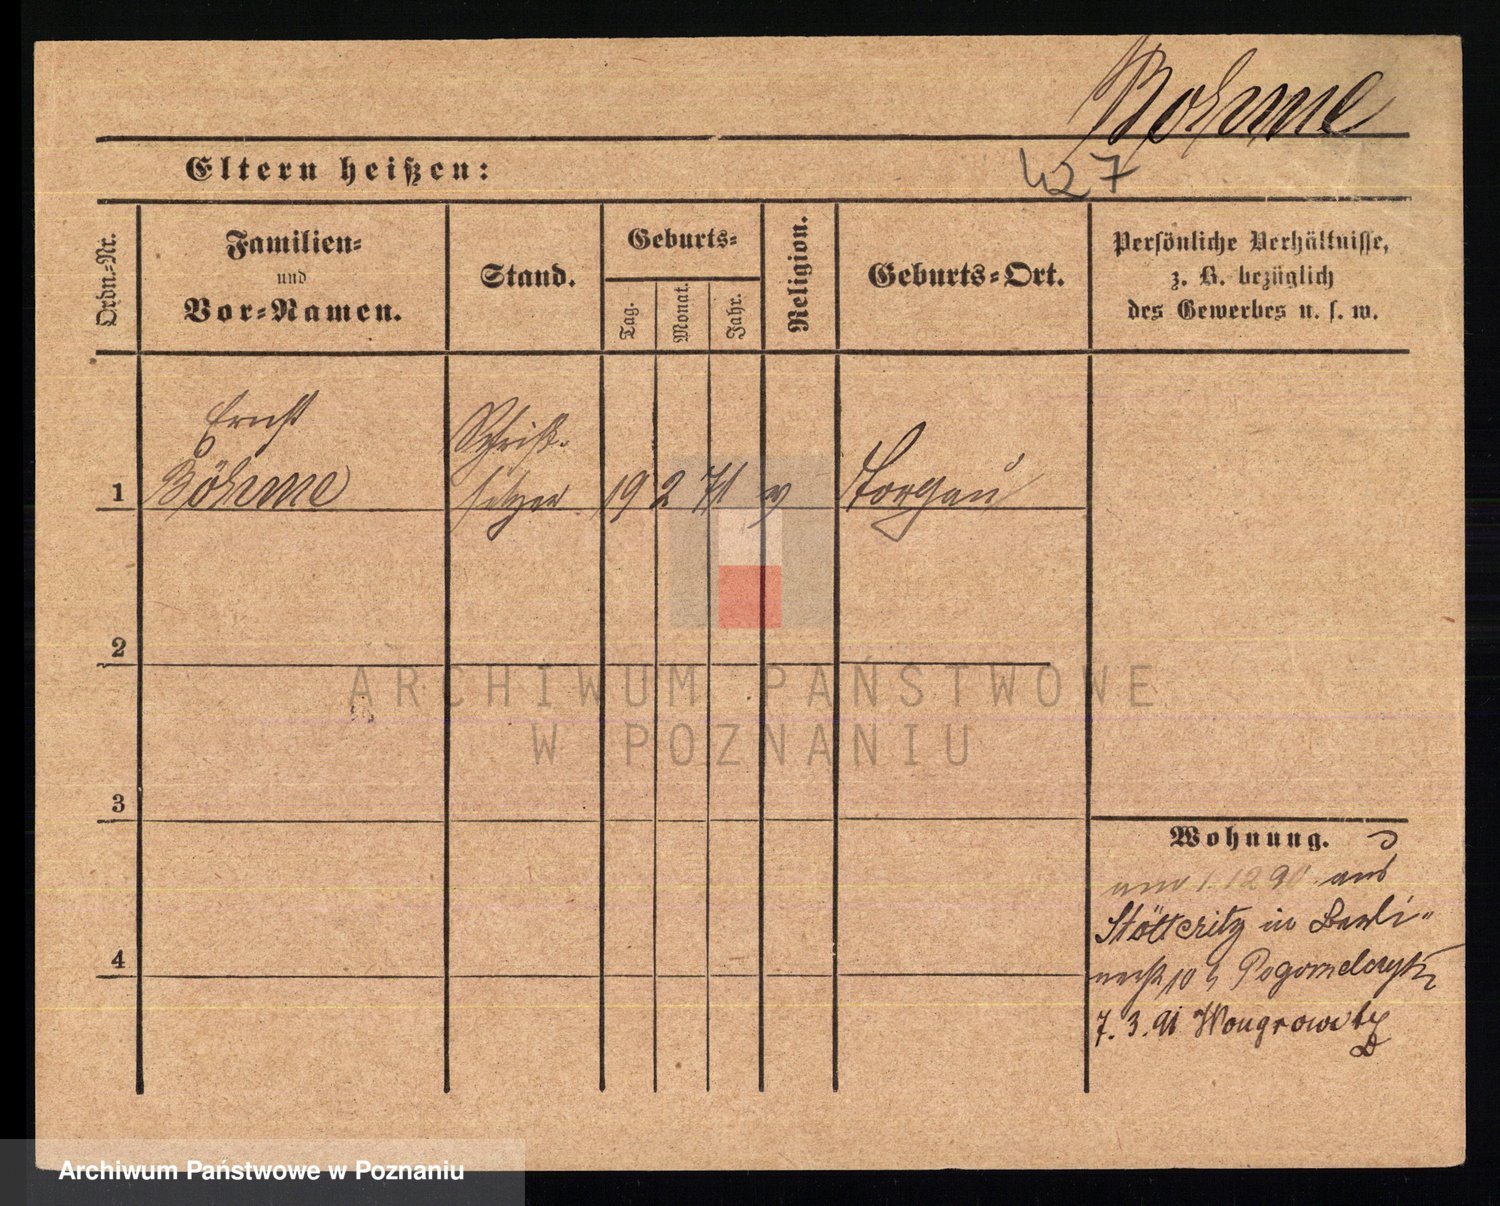 Böhme
427
Eltern heißen:
Ordn.-Nr.
Familien-
und
Vor-Namen.
Stand.
Geburts-
Tag.
Monat.
Jahr.
Religion.
Geburts-Ort.
Persönliche Verhältnisse,
z. B. bezüglich
des Gewerbes u. s. w.
Ernst
Böhme
Schrift-
setzer
1
19 2 71
Torgau
2
3
4
Wohnung.
am 1. 12 90 aus
Stötteritz in Berli-
10 Pogorzelczyk
7. 3. 91 Wongrowitz
ARCHIWUM PAŃSTWOWE
W POZNANIU
Archiwum Państwowe w Poznaniu